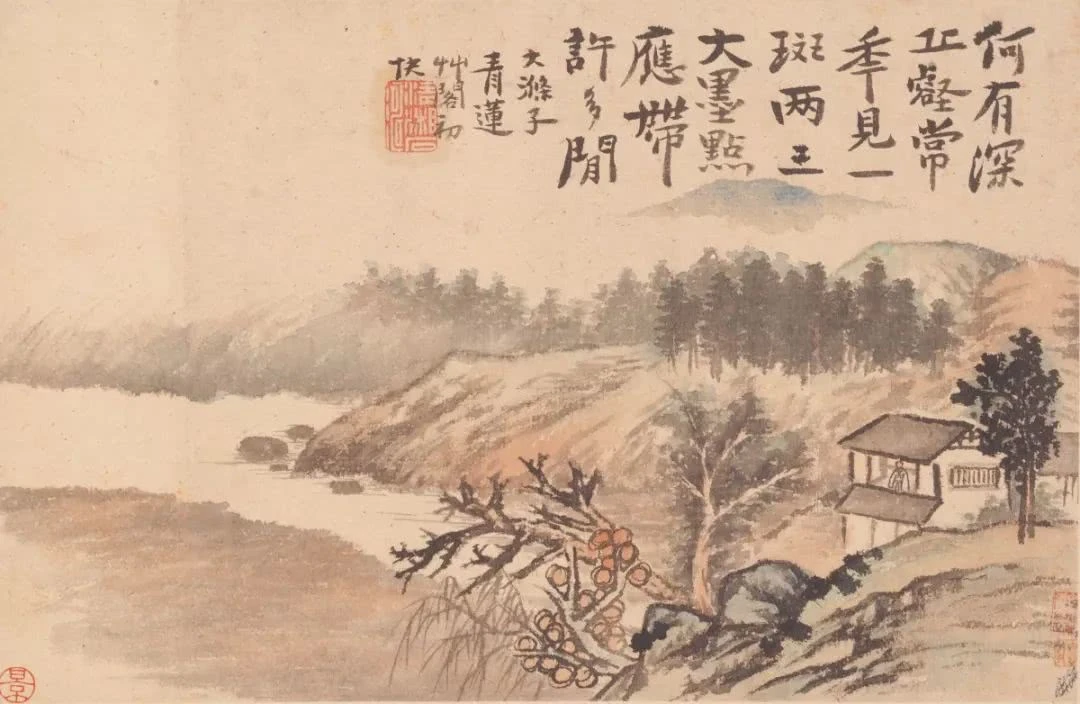 何有深
丘壑常
秊見一
斑两三
大墨點
應帶
許多閒
大滌子
青蓮
艸閣初
伏